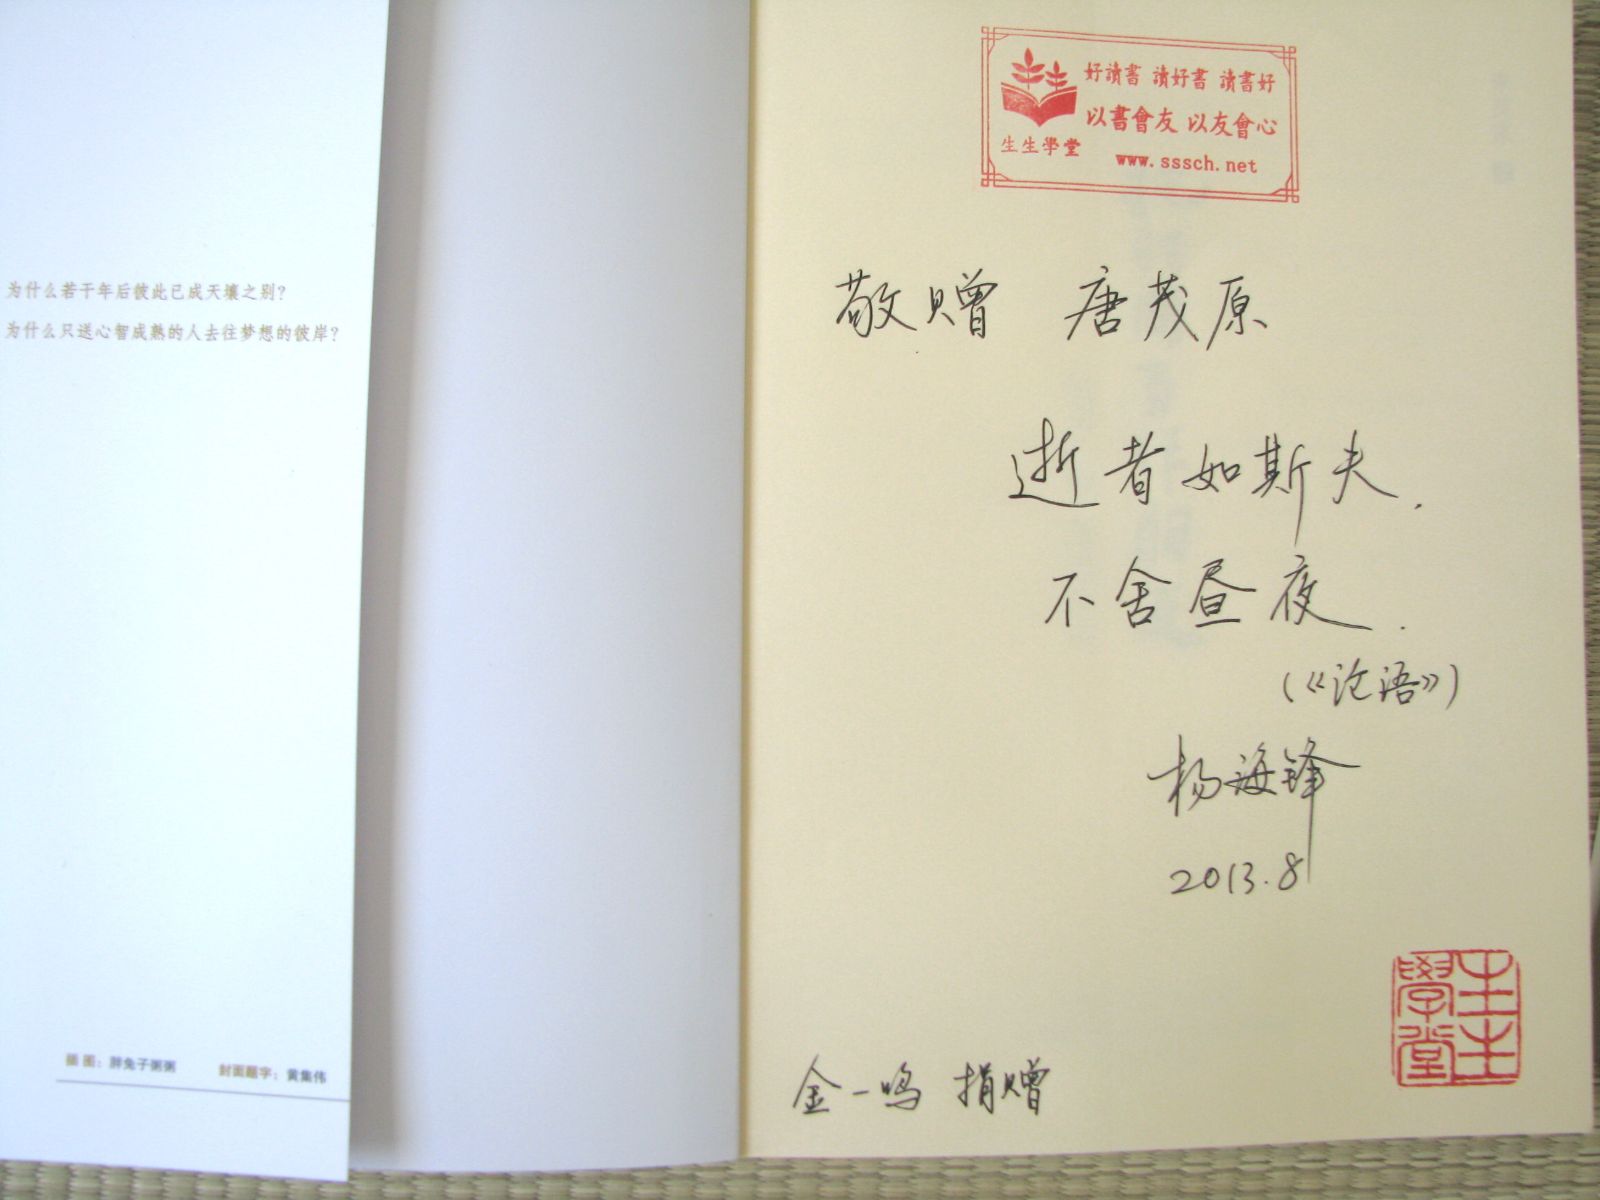 为什么若干年后彼此已成天壤之别？
为什么只送心智成熟的人去往梦想的彼岸？
插图：胖兔子粥粥 封面题字：黄集伟
好讀書 讀好書 讀書好
以書會友 以友會心
生生學堂 www.sssch.net
敬赠 唐茂原
逝者如斯夫.
不舍昼夜.
(《论语》)
杨海锋
2013.8
生生學堂
金一鸣 捐赠